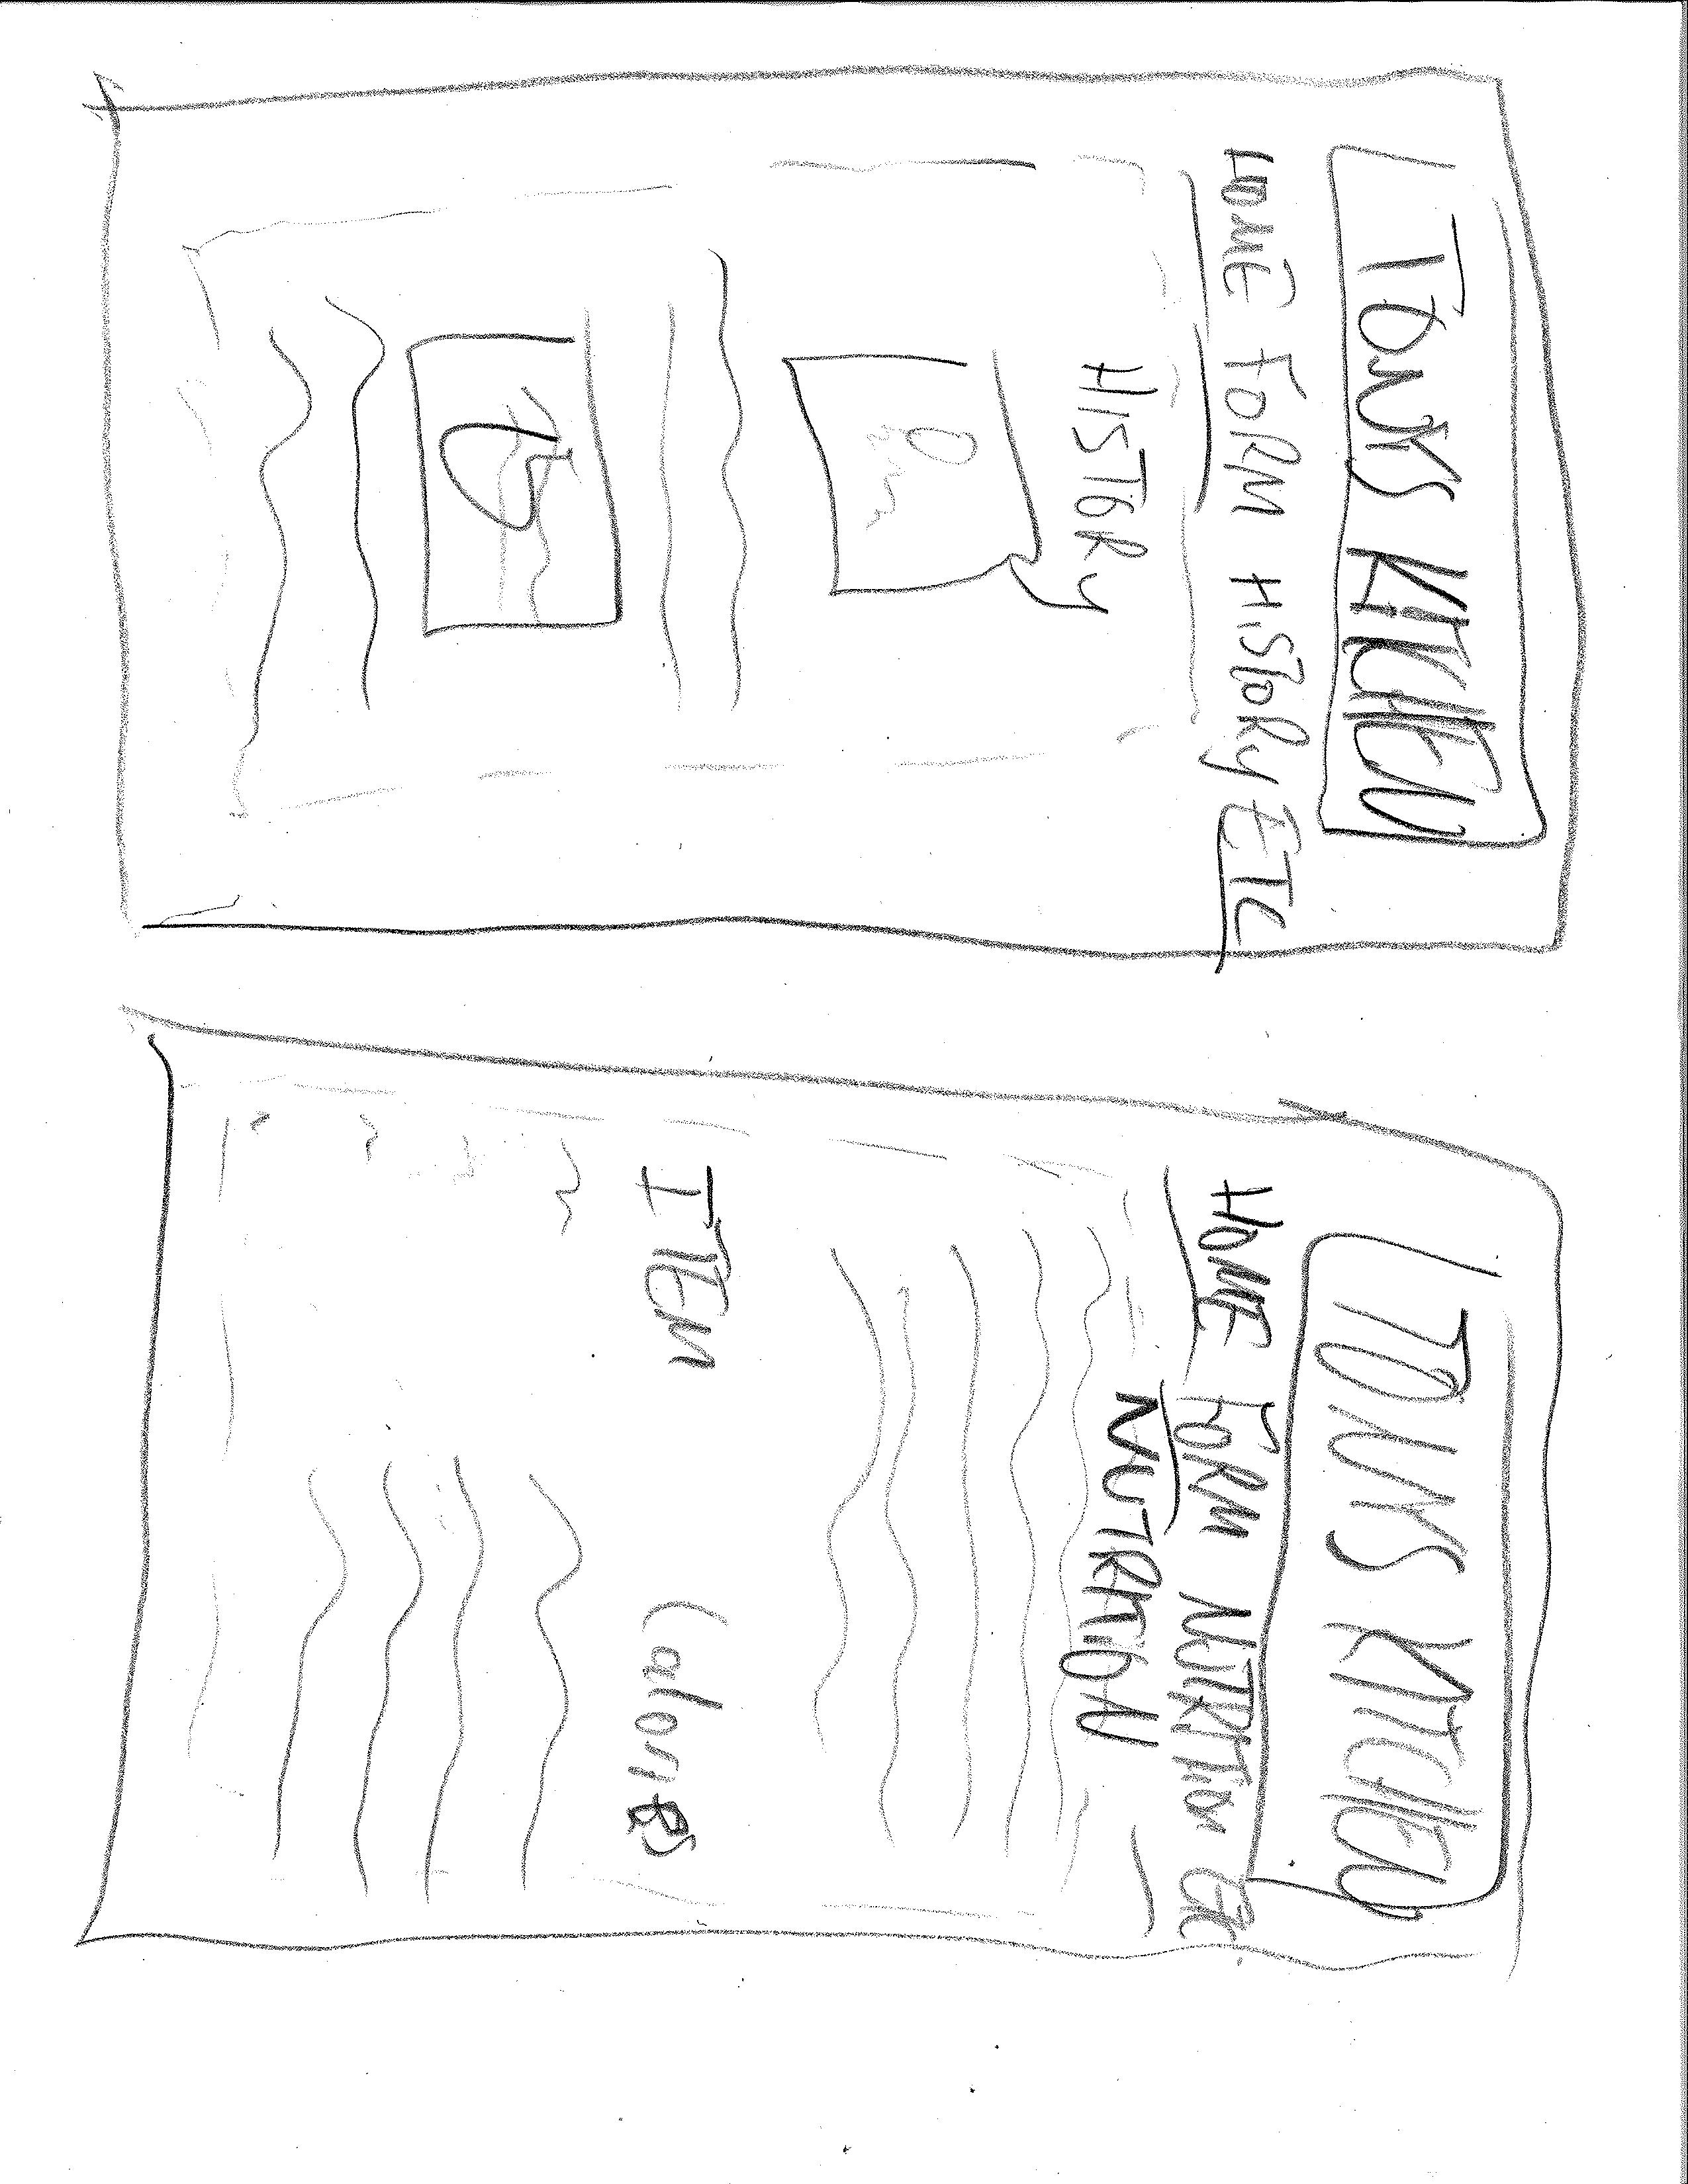 TONYS KITCHEN
HOME FORM HISTORY ETC
HISTORY
TONYS KITCHEN
HOME FORM NUTRITION Etc.
NUTRITION
ITEM Calories